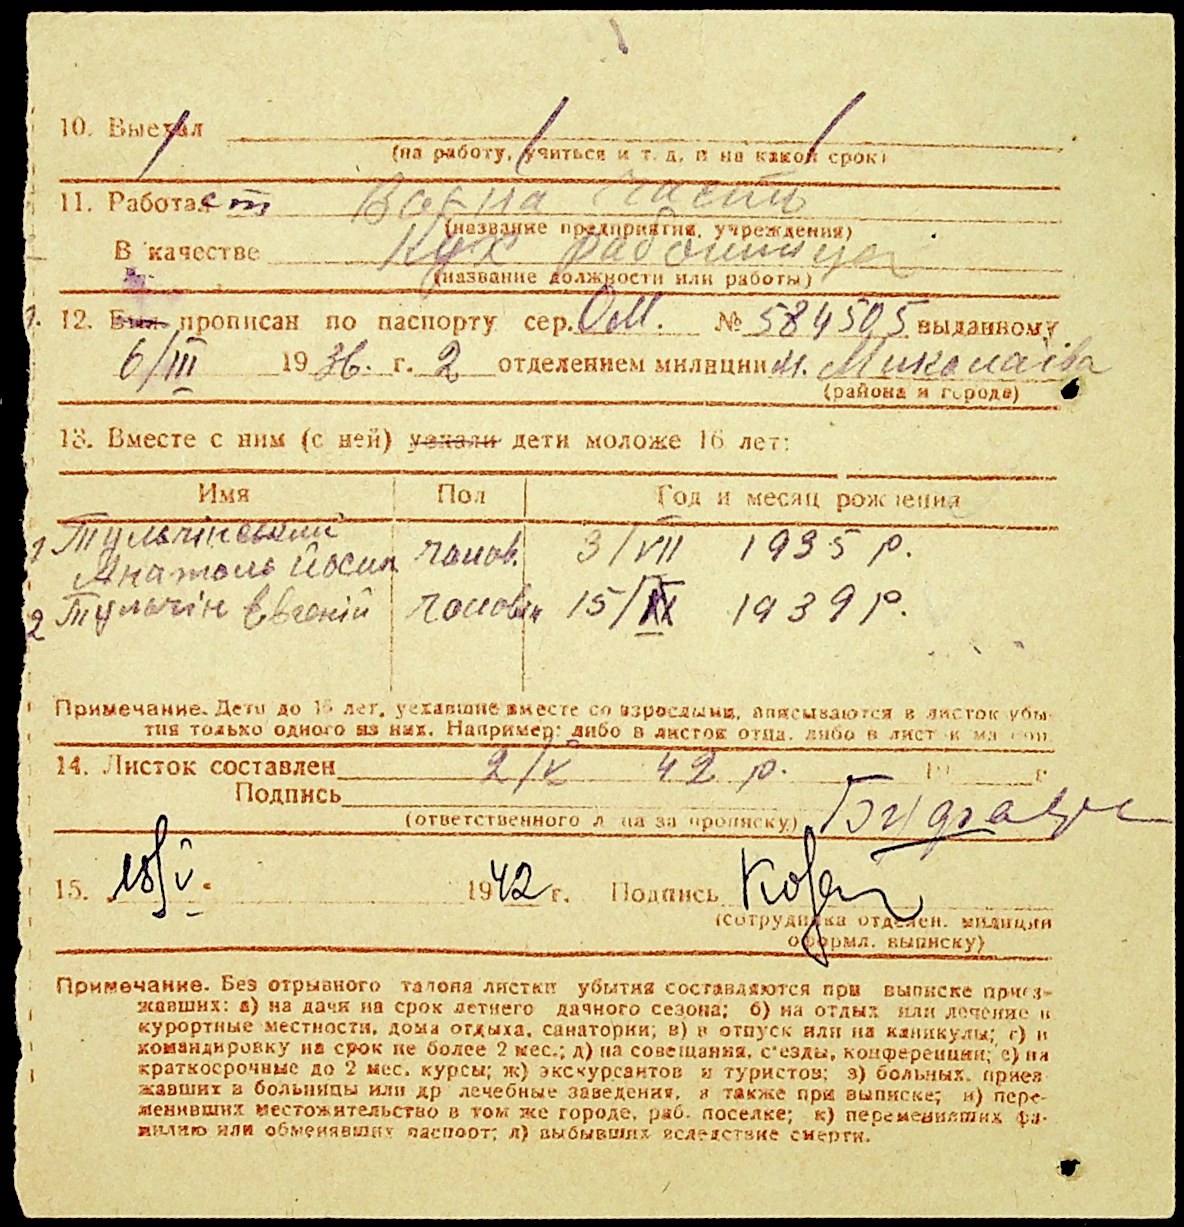 10. Выехал
(на работу, учиться и т. д. и на какой срок)
11. Работает Воєна часть
(название предприятия, учреждения)
В качестве Кух работницеі
(название должности или работы)
12. Был прописан по паспорту сер. ОМ. № 584505 выданному
6/III 1936. г. 2 отделением милиции м. Миколаїва
(района и города)
13. Вместе с ним (с ней) уехали дети моложе 16 лет:
Имя Пол Год и месяц рождения
1 Тульчінський
Анатоль Йосип чолов. 3/VII 1935 р.
2 Тульчін Євгеній чолов. 15/IX 1939 р.
Примечание. Дети до 16 лет, уехавшие вместе со взрослыми, вписываются в листок убы-
тия только одного из них. Например: либо в листок отца, либо в листок матери.
14. Листок составлен 2/V 42 р. 19 г.
Подпись
(ответственного лица за прописку)
15. 18/V. 1942 г. Подпись
(сотрудника отделен. милиции
оформл. выписку)
Примечание. Без отрывного талона листки убытия составляются при выписке приез-
жавших: а) на дачи на срок летнего дачного сезона; б) на отдых или лечение в
курортные местности, дома отдыха, санатории; в) в отпуск или на каникулы; г) в
командировку на срок не более 2 мес.; д) на совещания, с'езды, конференции; е) на
краткосрочные до 2 мес. курсы; ж) экскурсантов и туристов; з) больных, приез-
жавших в больницы или др лечебные заведения, а также при выписке; и) пере-
менивших местожительство в том же городе, раб. поселке; к) переменивших фа-
милию или обменявших паспорт; л) выбывших вследствие смерти.